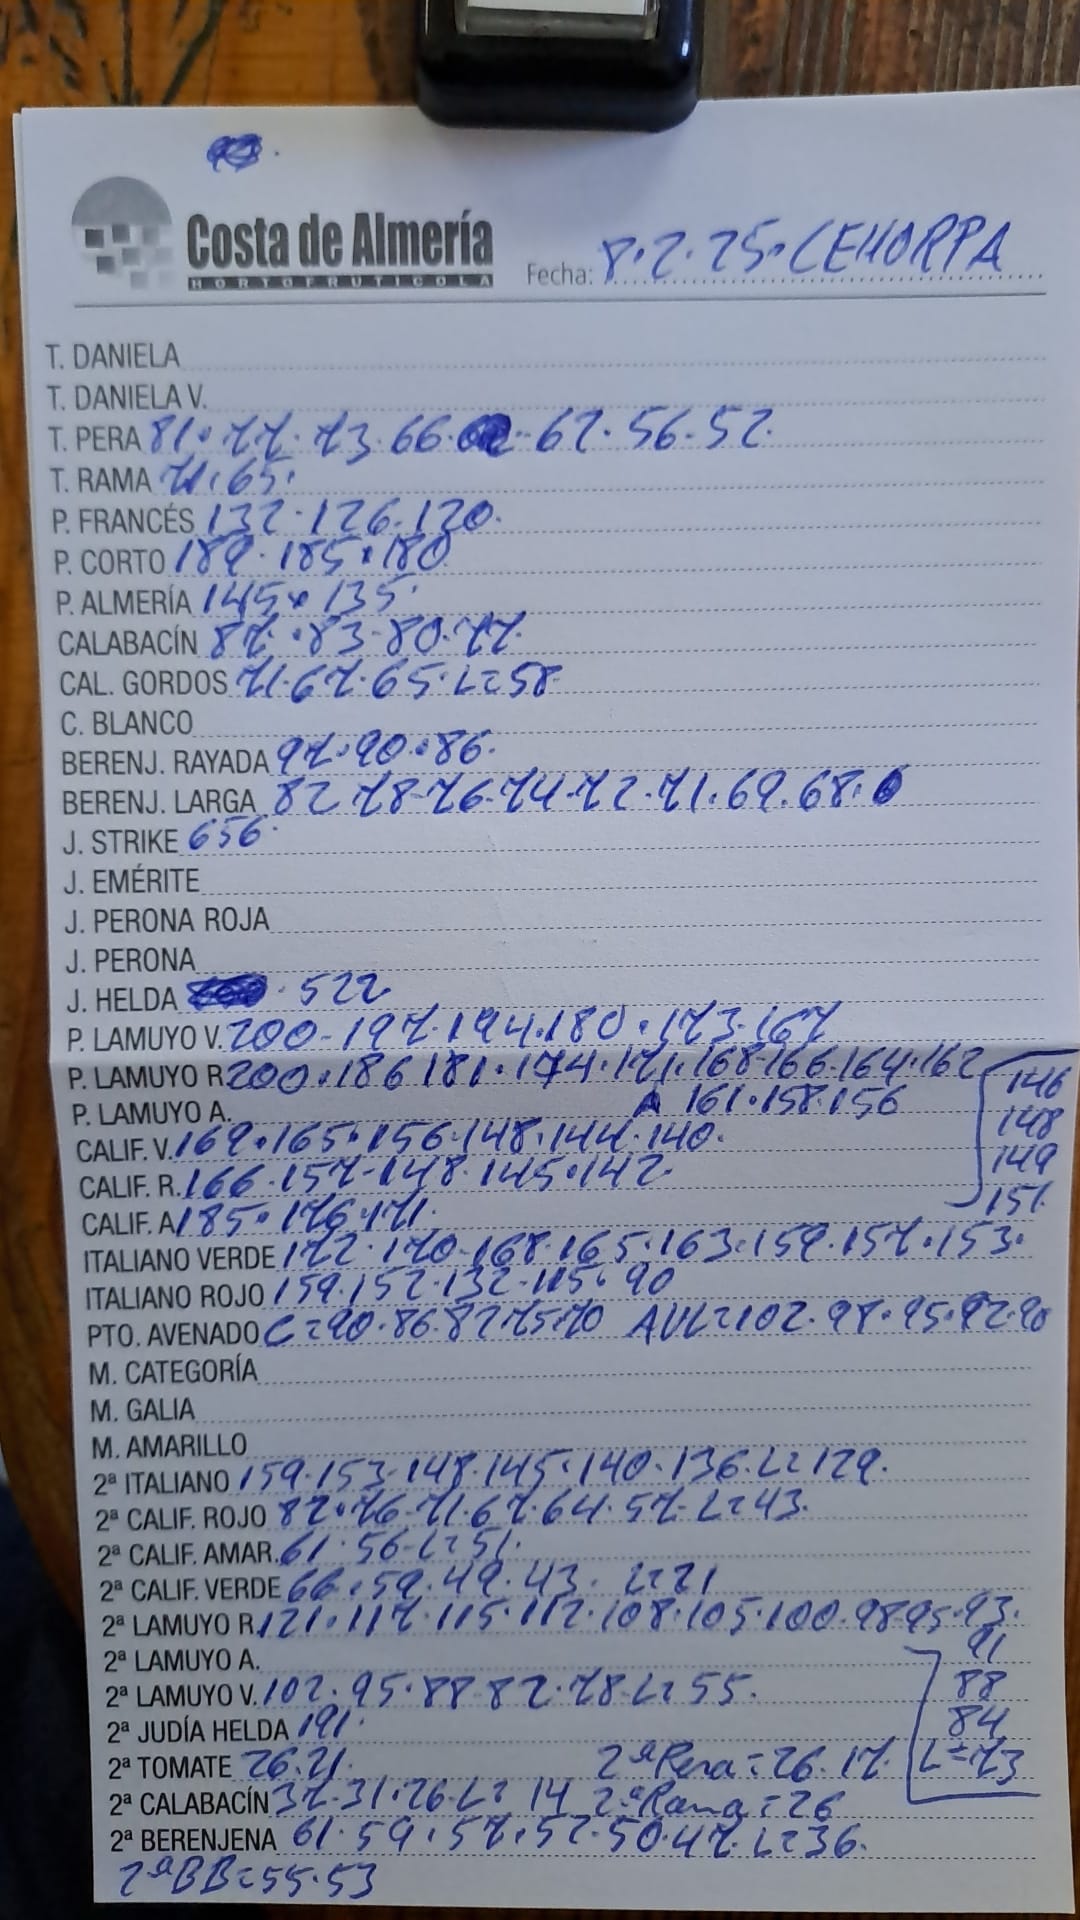 Costa de Almería
HORTOFRUTICOLA
Fecha: 8.2.25. CEHORPA
T. DANIELA
T. DANIELA V.
T. PERA 81.77.73.66. 62.56.52.
T. RAMA 71.65.
P. FRANCÉS 132.126.120.
P. CORTO 189.185.180
P. ALMERÍA 145.135.
CALABACÍN 87.83-80.77.
CAL. GORDOS 71.67.65.L=58
C. BLANCO
BERENJ. RAYADA 97.90.86.
BERENJ. LARGA 82 78-76.74-72.71.69.68.
J. STRIKE 656.
J. EMÉRITE
J. PERONA ROJA
J. PERONA
J. HELDA . 522
P. LAMUYO V. 200-197.194.180.173.167
P. LAMUYO R 200.186 181.174.171.168-166.164.162
P. LAMUYO A. 161.158.156
146
148
149
151.
CALIF. V. 169.165.156.148.144.140.
CALIF. R. 166.157-148.145.142.
CALIF. A 185.176.171.
ITALIANO VERDE 172.170-168.165.163.159.157.153.
ITALIANO ROJO 159.152.132-115.90
PTO. AVENADO C=90.86.82.75.70 AVL=102.98.95.92.90
M. CATEGORÍA
M. GALIA
M. AMARILLO
2ª ITALIANO 159.153-148.145.140.136.L=129.
2ª CALIF. ROJO 82.76-71.67.64.57-L=43.
2ª CALIF. AMAR. 61.56-L=51.
2ª CALIF. VERDE 66.59.49.43. L=21
2ª LAMUYO R. 121.117.115.112.108.105.100.98-95.93.
91
88
84
L=73
2ª LAMUYO A.
2ª LAMUYO V. 102.95.88-82.78.L=55.
2ª JUDÍA HELDA 191.
2ª TOMATE 26.21. 2ªPera=26.17.
2ª CALABACÍN 37.31.26.L=14 2ªRama=26
2ª BERENJENA 61.59.57.52.50.47.L=36.
2ªBB=55.53